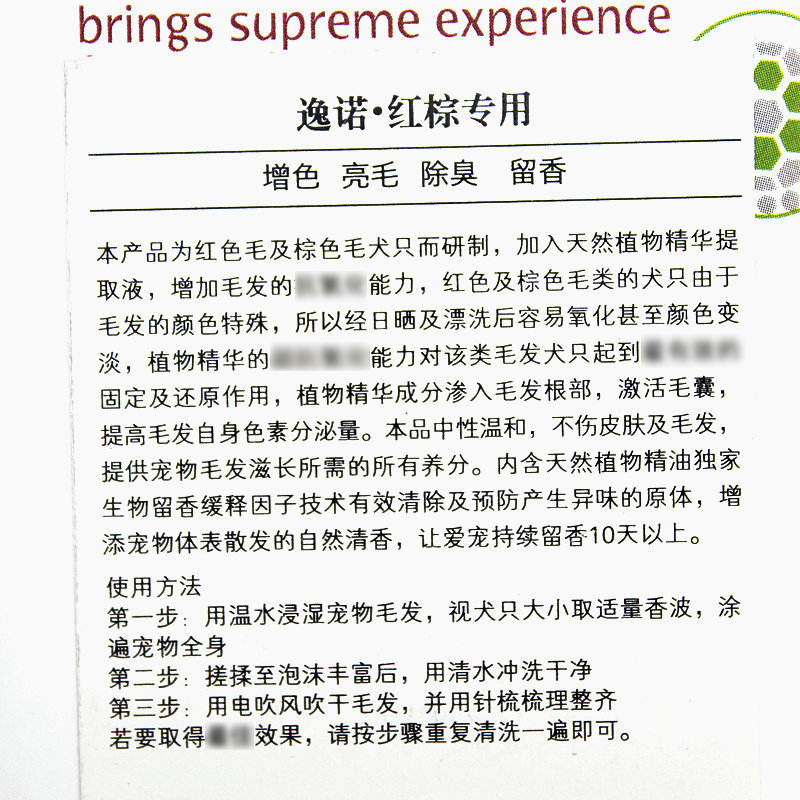 brings supreme experience
逸诺·红棕专用
增色 亮毛 除臭 留香
本产品为红色毛及棕色毛犬只而研制，加入天然植物精华提
取液，增加毛发的能力，红色及棕色毛类的犬只由于
毛发的颜色特殊，所以经日晒及漂洗后容易氧化甚至颜色变
淡，植物精华的能力对该类毛发犬只起到
固定及还原作用，植物精华成分渗入毛发根部，激活毛囊，
提高毛发自身色素分泌量。本品中性温和，不伤皮肤及毛发，
提供宠物毛发滋长所需的所有养分。内含天然植物精油独家
生物留香缓释因子技术有效清除及预防产生异味的原体，增
添宠物体表散发的自然清香，让爱宠持续留香10天以上。
使用方法
第一步：用温水浸湿宠物毛发，视犬只大小取适量香波，涂
遍宠物全身
第二步：搓揉至泡沫丰富后，用清水冲洗干净
第三步：用电吹风吹干毛发，并用针梳梳理整齐
若要取得效果，请按步骤重复清洗一遍即可。